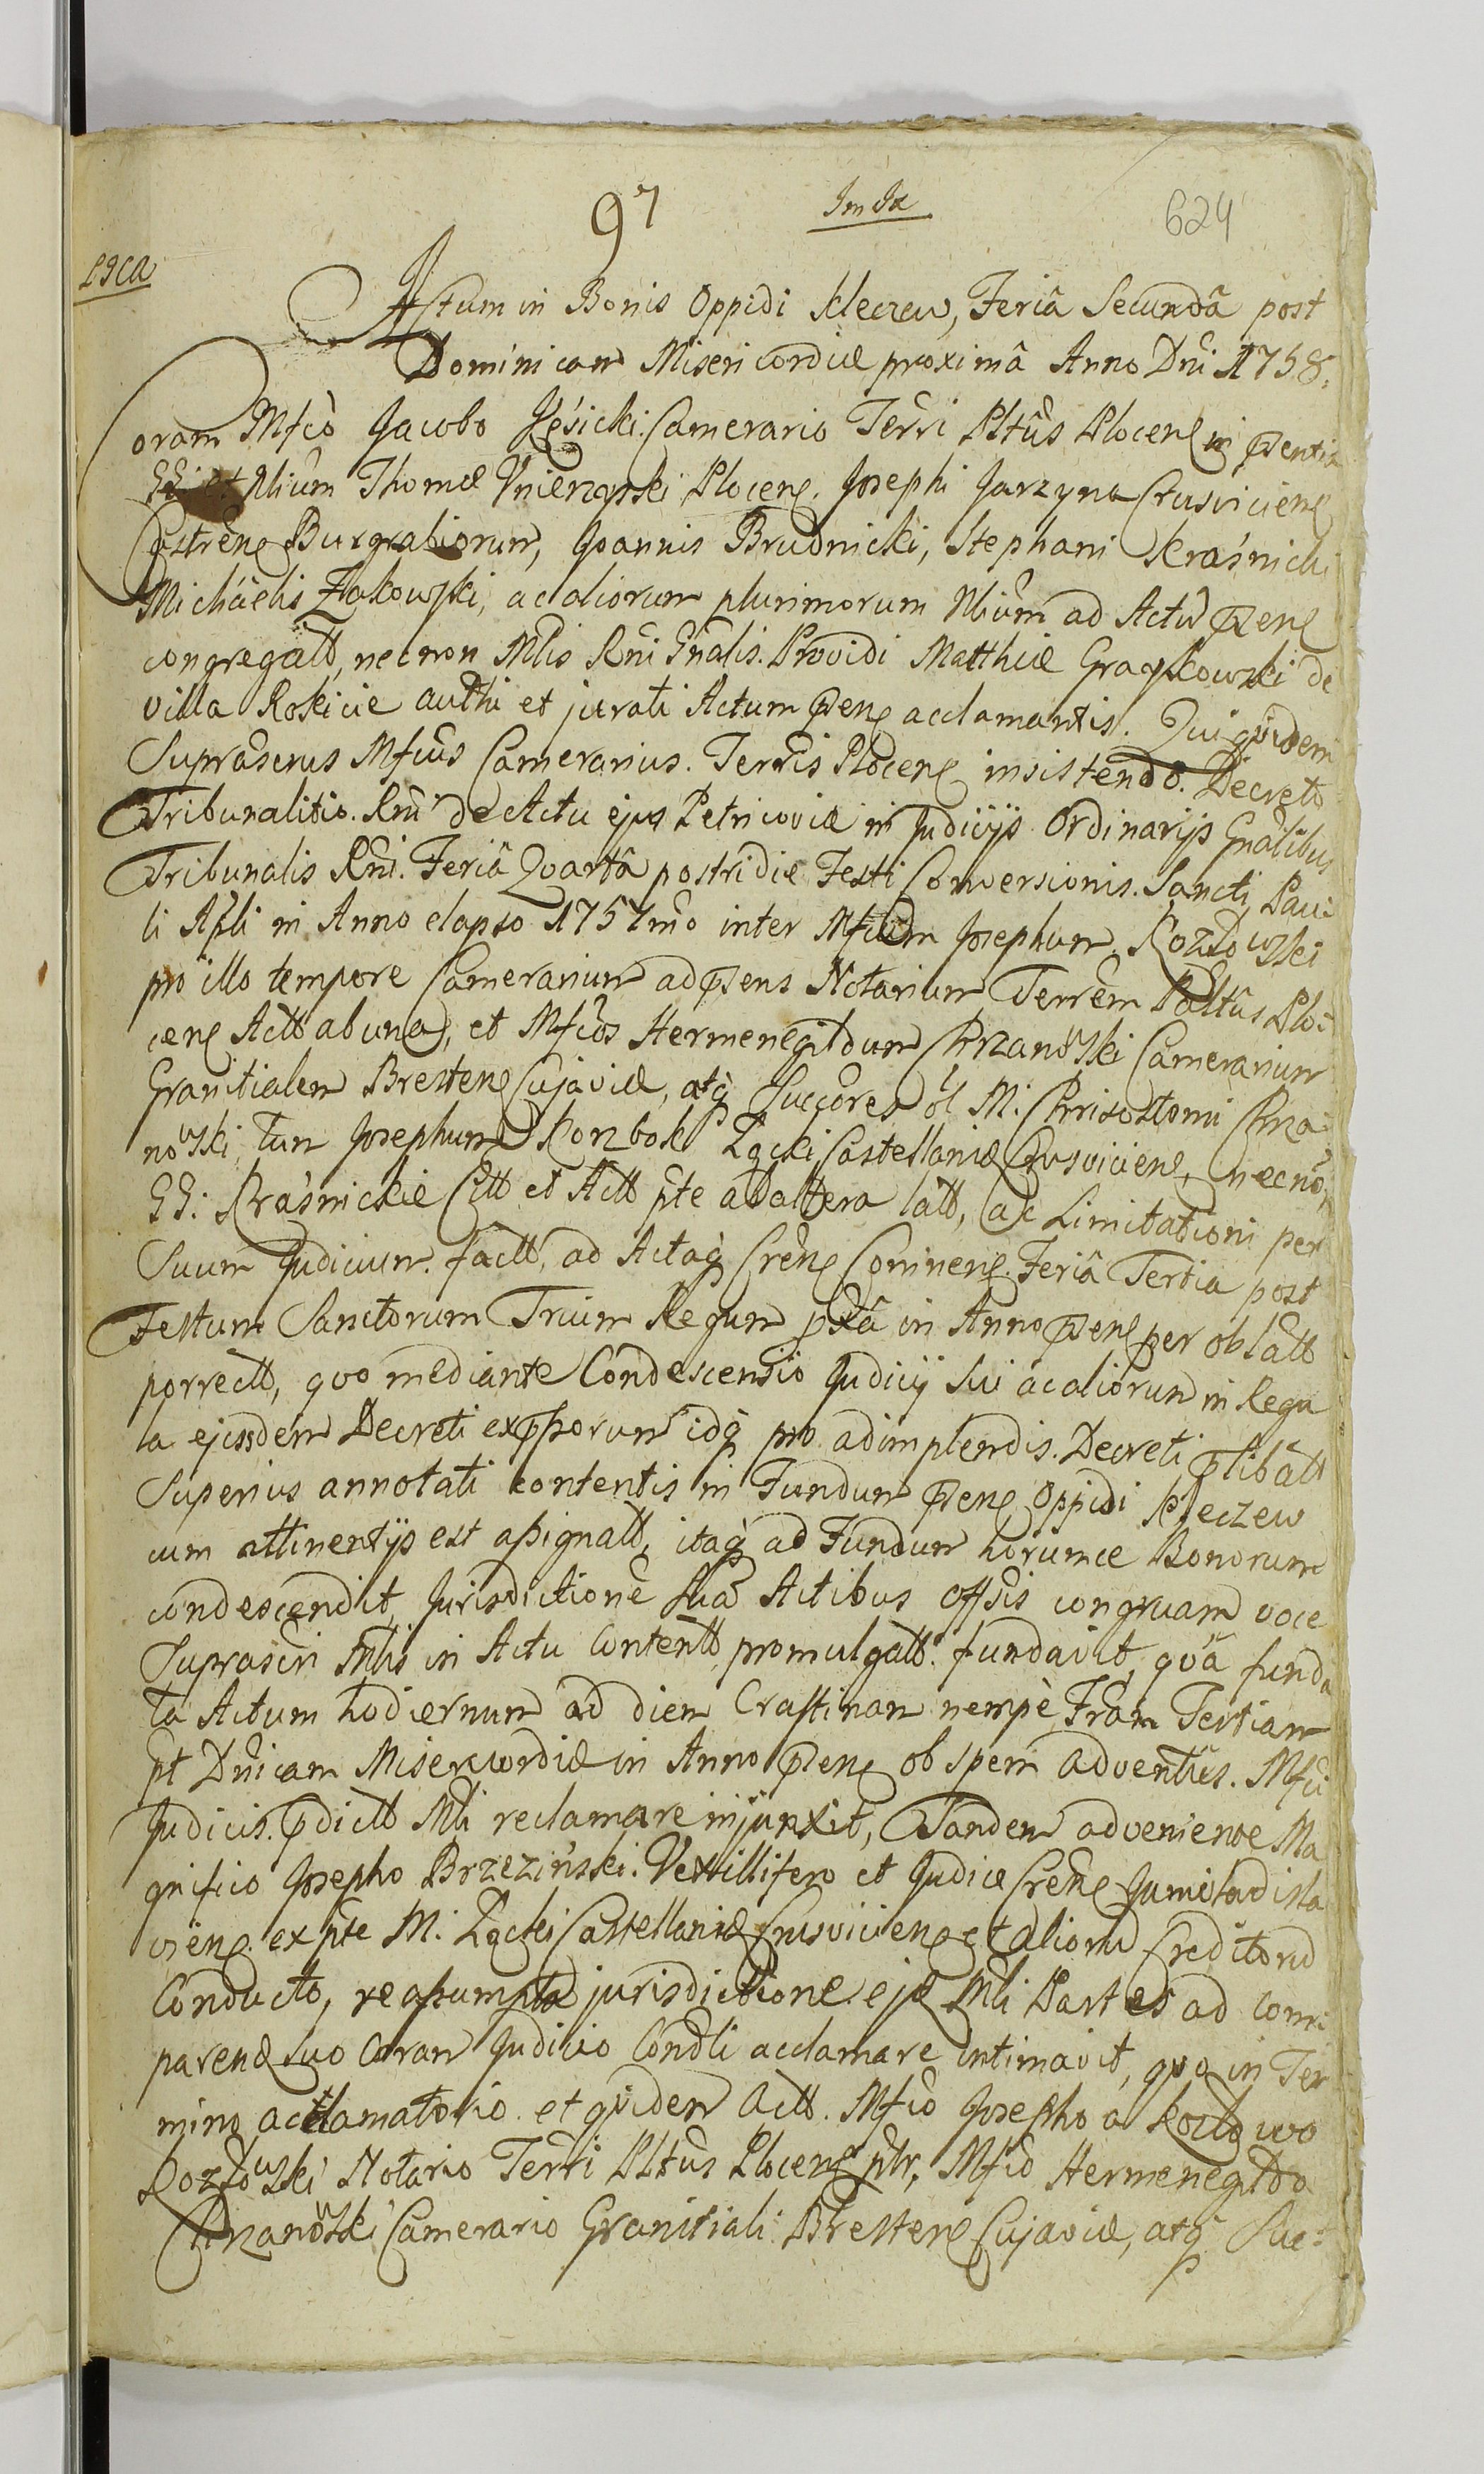 97 Im Ia 624
Actum in Bonis Oppidi Kleczew, Feriâ Secundâ post
Dominicam Misericordiæ proximâ Anno Dni 1758.
Coram Mfcô Jacobo Kęsicki Camerario Terri Pltûs Plocen in psentia
GG et Nlium Thomæ Plocen. Josephi Jarzyna Crusvicien
Castren Burgrabiorum, Joannis Brudnicki, Stephani Kraśnicki
Michaëlis Żakowski, ac aliorum plurimorum Nlium ad Actũ psen
congregatt, necnon Mlis Rni Gnalis. Providi Matthiæ de
villa Rokicie authi et jurati Actum psens acclamantis. Qui quidem
Suprascrus Mfcus Camerarius. Terris Plocen insistendo. Decreto
Tribunalitio. Rni de Actu ejus Petricoviæ in Judicijs Ordinarijs Gnalibus
Tribunalis Rni. Feriâ Qvartâ postridie Festi Conversionis. Sancti Pau:
li Apli in Anno elapso 1757mo inter Mfcum Josephum Kozłowski
pro illo tempore Camerarium ad psens Notarium Terrem Paltûs Plo:
cen Actt ab una, et Mfcos Hermenegildum Chrzanowski Camerarium
Granitialem Bresten Cujaviæ, atq Succores ol M: Chrisostomi Chrza
nowski, tum Josephum Korzbok Łącki Castellanidæ Crusvicien, necnõ
GG: Kraśnickie Citt et Actt pte ab altera latt, ac Limitationi per
Suum Judicium factt, ad Actaq Cren Coninen Feriâ Tertia post
Festum Sanctorum Trium Regum pxâ in Anno psen per oblatt
porrectt, qvo mediante Condescensio Judicij sui ac aliorum in Regu
la ejusdem Decreti expssorum idq pro adimplendis. Decreti plibatt
Superius annotati contentis in Fundum psen Oppidi Kleczew
cum attinentijs est assignatt, itaq ad Fundum horumce Bonorum
condescendit, Jurisdictionẽ suã Actibus offsis congruam voce
Suprascri Mlis in Actu Contentt promulgatt fundavit, qvâ funda
ta Actum hodiernum ad diem Crastinam nempè Fram Tertiam
pt Dnicam Misericordiæ in Anno psen ob spem adventûs. Mfci
Judicis. pdictt Mli reclamare injunxit, Tandem adveniente Ma
gnifico Josepho Brzeziński. Vexillifero et Judice Cren Juniwladisla
vien ex pte M: Łącki Castellanidæ Crusvicien et aliorũ Creditorũ
Conducto, reassumpta jurisdictione ejus Mli Partes ad com:
parend suo Coram Judicio Condli acclamare intimavit, qvo in Ter
mino acclamatorio et qvidem Actt. Mfco Josepho a Kozłowo
Kozłowski Notario Terri Pltûs Plocen ptr, Mfco Hermenegildo
Chrzanowski Camerario Granitiali Bresten Cujaviæ, atq Suc: